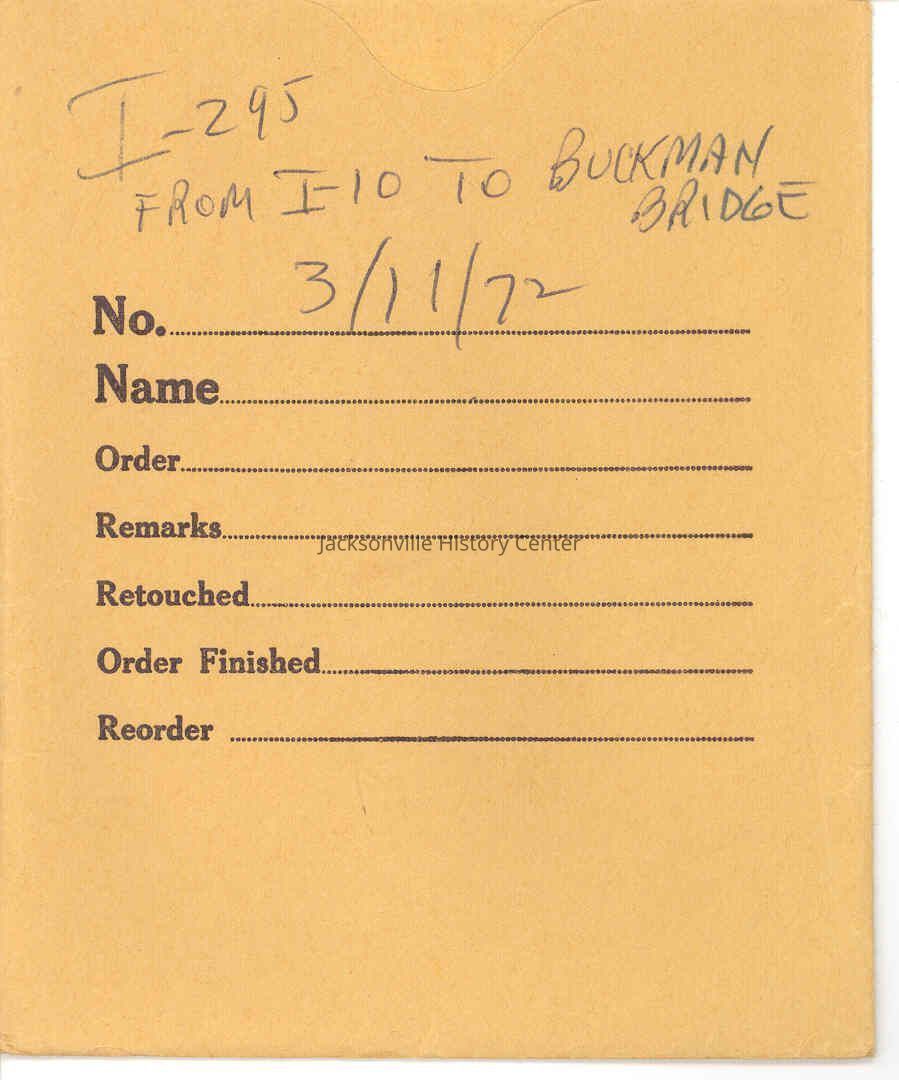 I-295
FROM I-10 TO BUCKMAN
BRIDGE
3/11/72
No.
Name
Order
Remarks
Jacksonville History Center
Retouched
Order Finished
Reorder